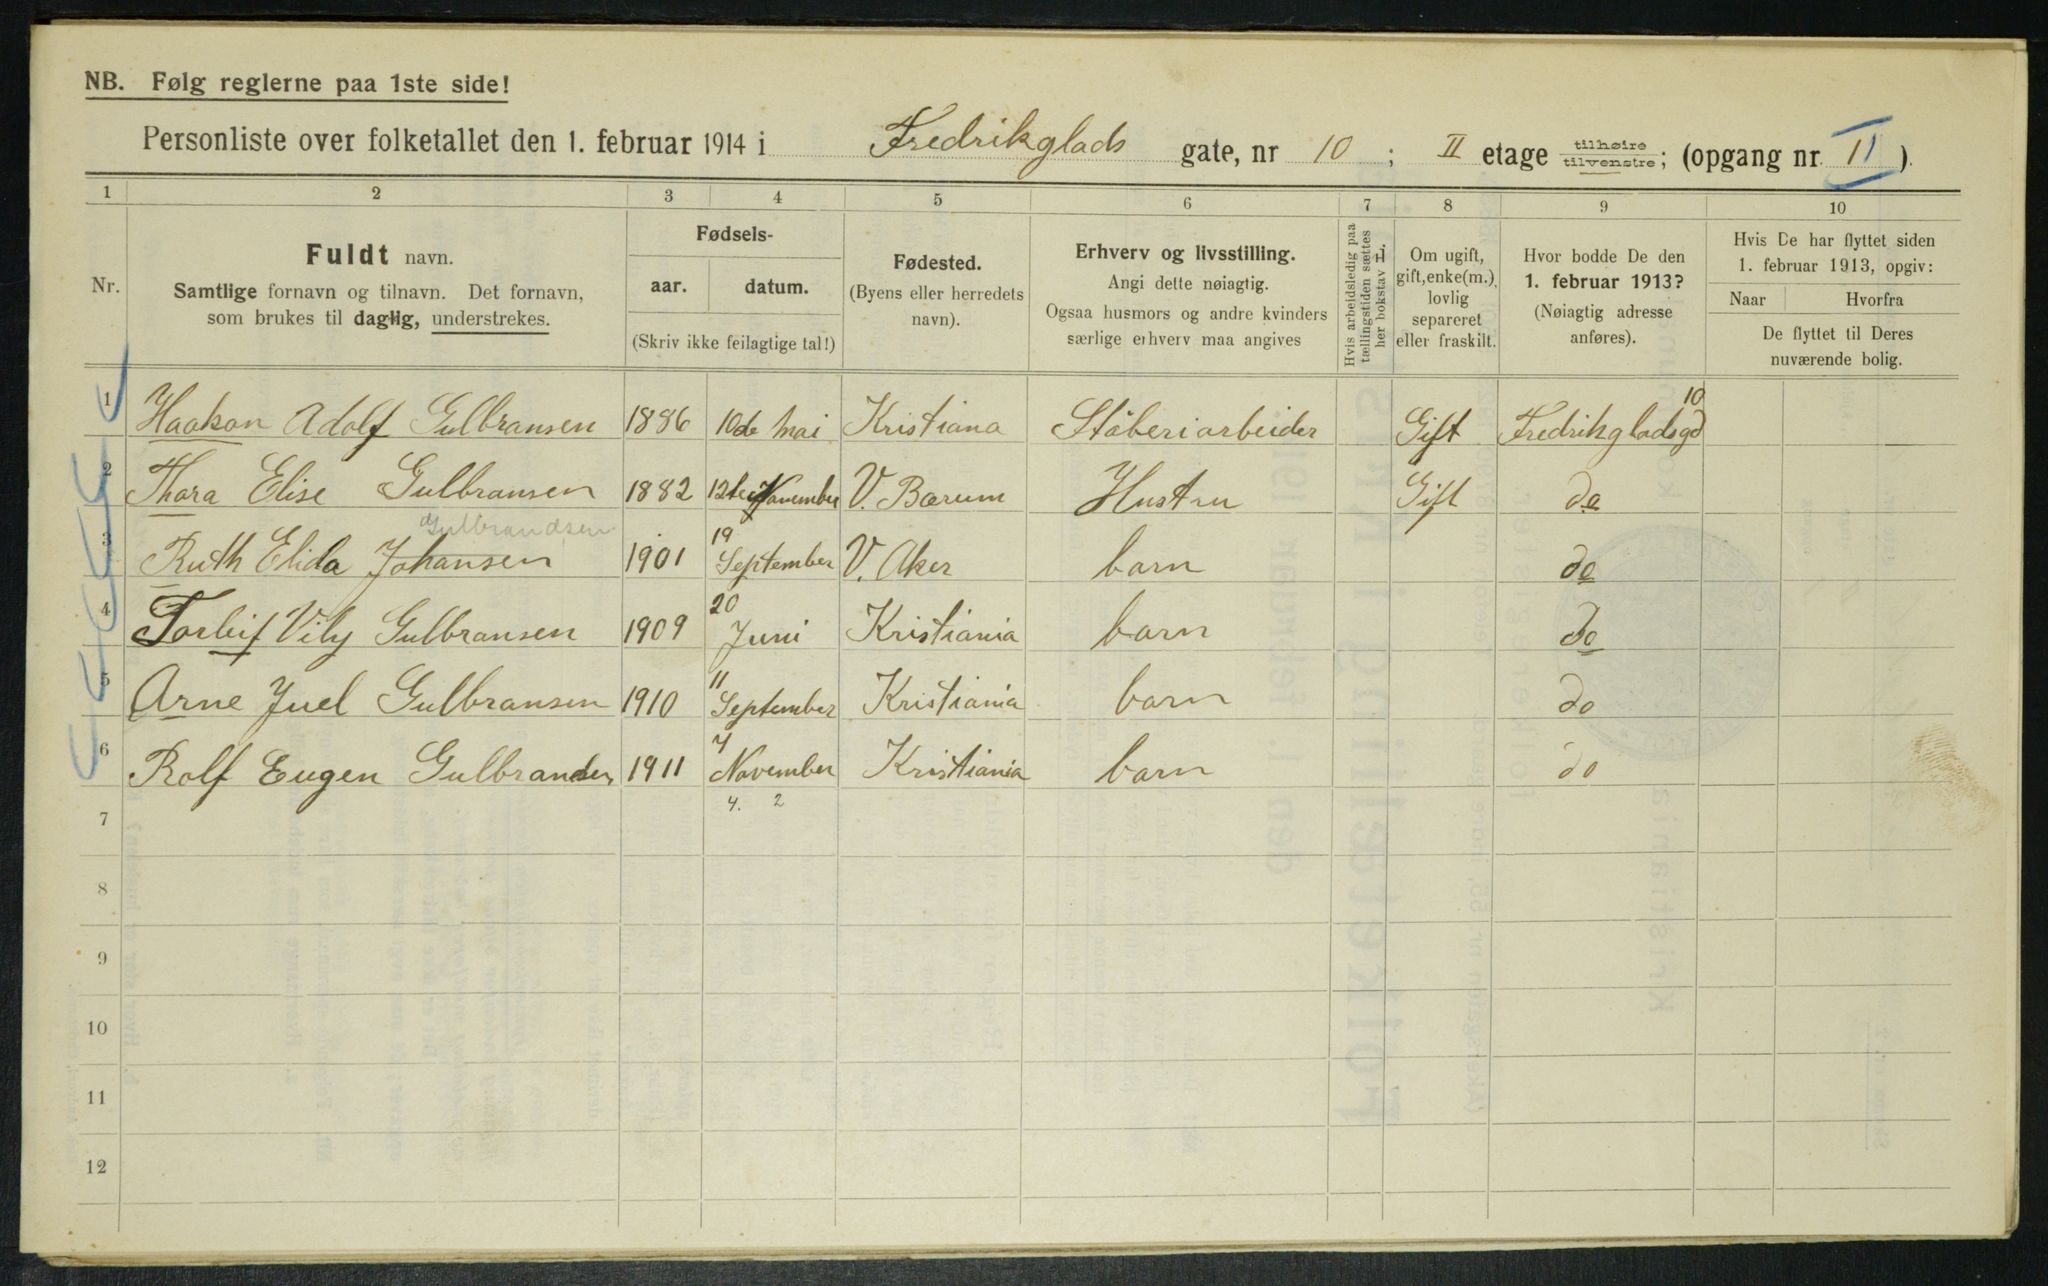 NB. Følg reglerne paa 1ste side!
Personliste over folketallet den 1. februar 1914 i Fredrikglads gate, nr 10 ; II etage tilhøire tilvenstre; (opgang nr. II ).
1 2 3 4 5 6 7 8 9 10
Nr.
Fuldt navn.
Samtlige fornavn og tilnavn. Det fornavn,
som brukes til daglig, understrekes.
Fødsels-
aar. datum.
(Skriv ikke feilagtige tal!)
Fødested.
(Byens eller herredets
navn).
Erhverv og livsstilling.
Angi dette nøiagtig.
Ogsaa husmors og andre kvinders
særlige erhverv maa angives
Hvis arbeidsledig paa
tællingstiden sættes
her bokstav L.
Om ugift,
gift, enke(m.),
lovlig
separeret
eller fraskilt.
Hvor bodde De den
1. februar 1913?
(Nøiagtig adresse
anføres).
Hvis De har flyttet siden
1. februar 1913, opgiv:
Naar Hvorfra
De flyttet til Deres
nuværende bolig.
1 Haakon Adolf Gulbransen 1886 10de Mai Kristiana Støberiarbeider Gift Fredrikgladsgd 10
2 Thora Elise Gulbransen 1882 12te November V. Bærum Hustru Gift do
Gulbrandsen
3 Ruth Elida Johansen 1901 19 September V. Aker barn do
4 Torleif Vily Gulbransen 1909 20 Juni Kristiania barn do
5 Arne Juel Gulbransen 1910 11 September Kristiania barn do
6 Rolf Eugen Gulbrandsen 1911 7 November Kristiania barn do
4. 2
7
8
9
10
11
12